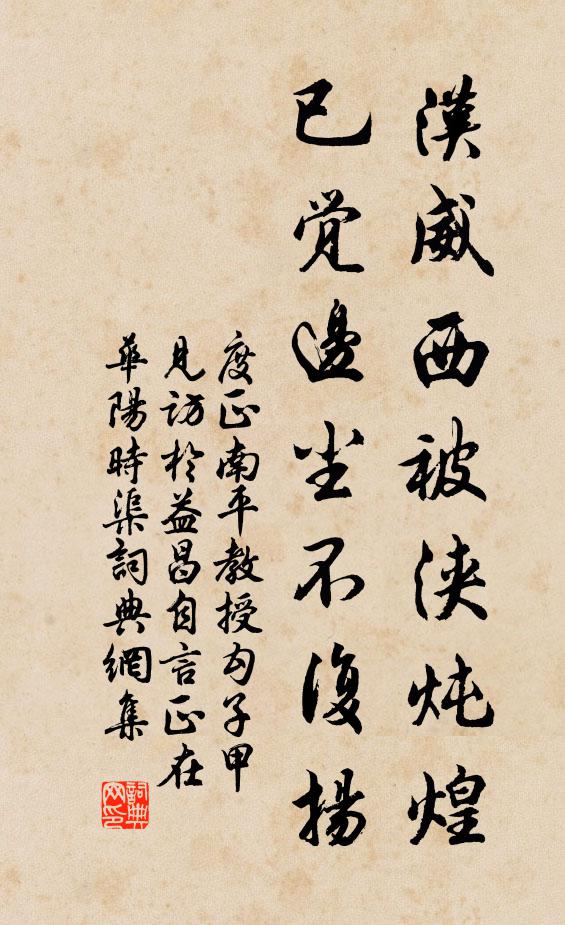 漢威西被浹炖煌
已覺邊尘不復揚
度正南平教授勾子甲
見訪於益昌自言正在
華陽時渠詞典網集
詞典网印